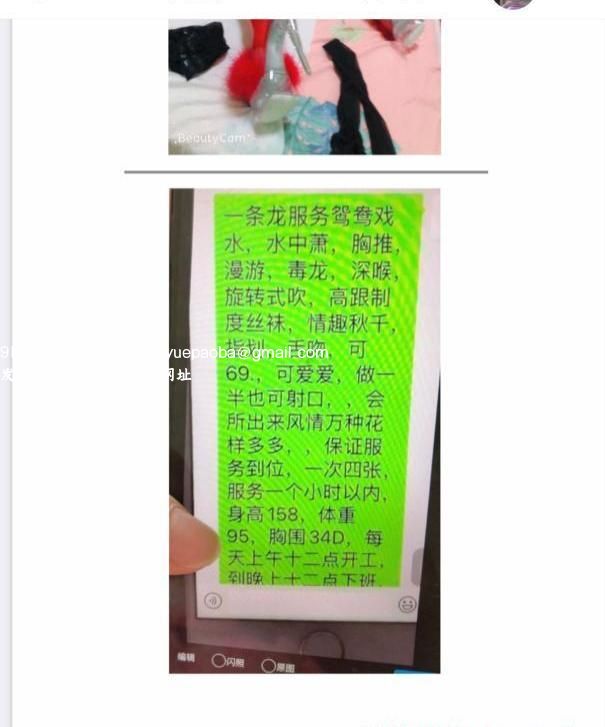 BeautyCam
一条龙服务鸳鸯戏
水，水中萧，胸推，
漫游，毒龙，深喉，
旋转式吹，高跟制
度丝袜，情趣秋千，
可
yuepaoba@gmail.com
69.，可爱爱，做一
网址
半也可射口，，会
所出来风情万种花
样多多，，保证服
务到位，一次四张，
服务一个小时以内，
身高158，体重
95，胸围34D，每
天上午十二点开工，
到晚上十二点下班，
编辑 闪照 原图